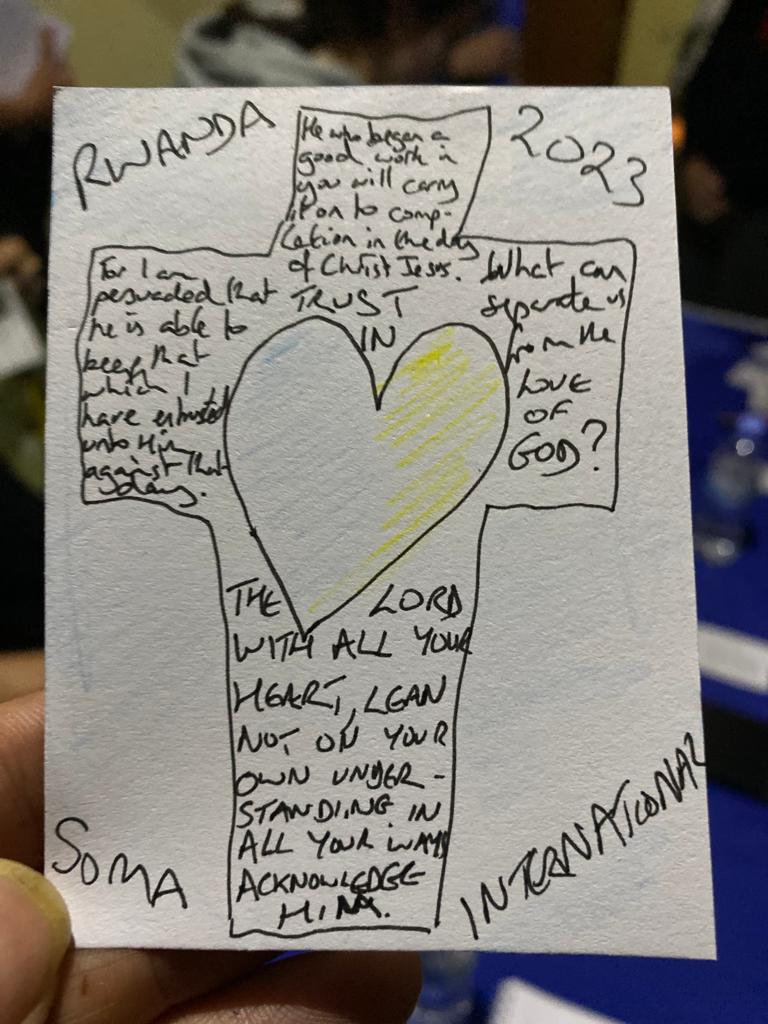 RWANDA
2023
He who began a
good work in
you will carry
it on to comp-
letion in the day
of Christ Jesus.
For I am
persuaded that
he is able to
keep that
which I
have entrusted
unto Him
against that
day.
What can
separate us
from the
LOVE
OF
GOD?
TRUST
IN
THE LORD
WITH ALL YOUR
HEART, LEAN
NOT ON YOUR
OWN UNDER-
STANDING IN
ALL YOUR WAYS
ACKNOWLEDGE
HIM.
SOMA
INTERNATIONAL